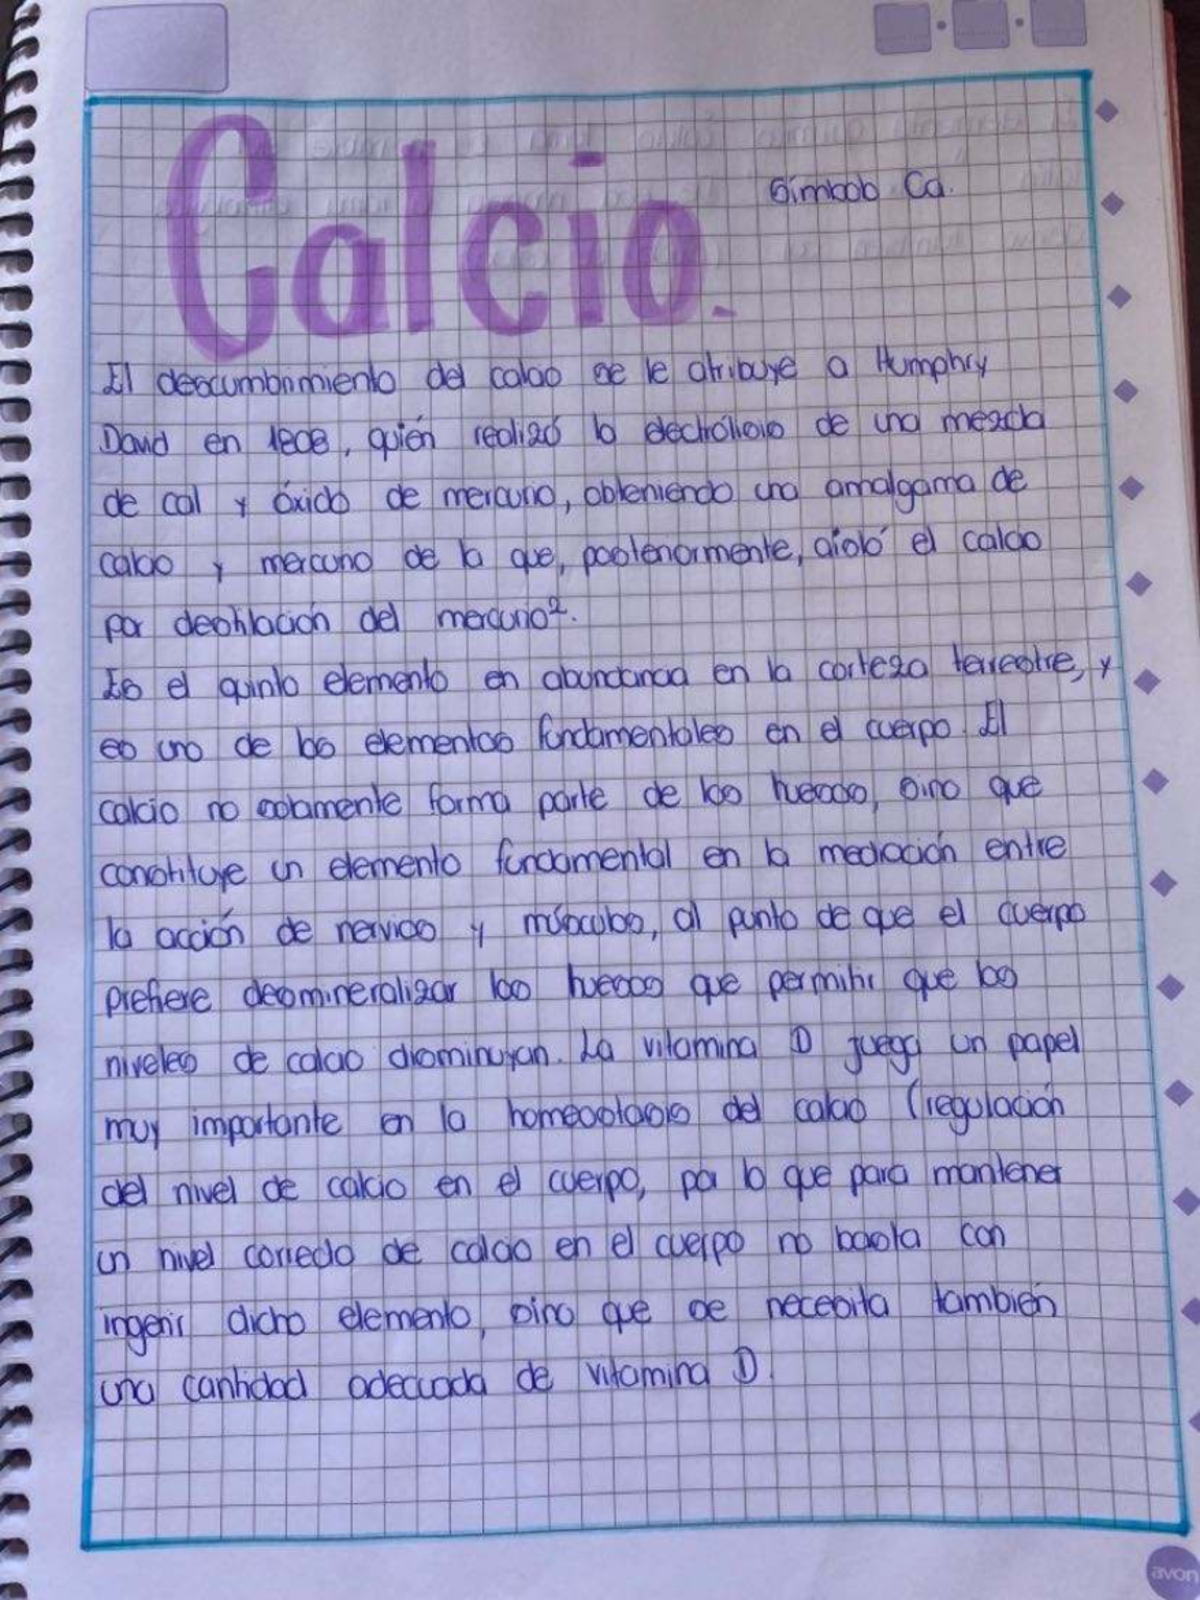 Calcio.
Símbolo Ca.
El descumbrimiento del calcio se le atribuye a Humphry
David en 1808, quién realizó la electrólisis de una mezcla
de cal y óxido de mercurio, obteniendo una amalgama de
calcio y mercurio de la que, posteriormente, aisló el calcio
por destilación del mercurio².
Es el quinto elemento en abundancia en la corteza terrestre, y
es uno de los elementos fundamentales en el cuerpo. El
calcio no solamente forma parte de los huesos, sino que
constituye un elemento fundamental en la mediación entre
la acción de nervios y músculos, al punto de que el cuerpo
prefiere desmineralizar los huesos que permitir que los
niveles de calcio disminuyan. La vitamina D juega un papel
muy importante en la homeostasis del calcio (regulación
del nivel de calcio en el cuerpo, por lo que para mantener
un nivel correcto de calcio en el cuerpo no basta con
ingerir dicho elemento, sino que se necesita también
una cantidad adecuada de vitamina D.
avon